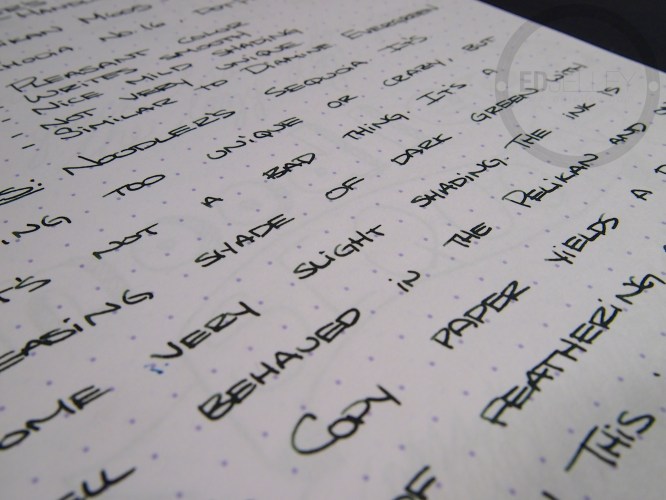 No. 16, Dot
- Pleasant color
- Writes smooth
- Nice mild shading
- Not very unique
- Similar to Diamine Evergreen
S: Noodler's Sequoia. It's
ing too unique or crazy, but
t's not a bad thing. It's a
easing shade of dark green with
ome very slight shading. The ink is
ell behaved in the Pelikan and
Copy paper yields a
of feathering
This
ED JELLEY